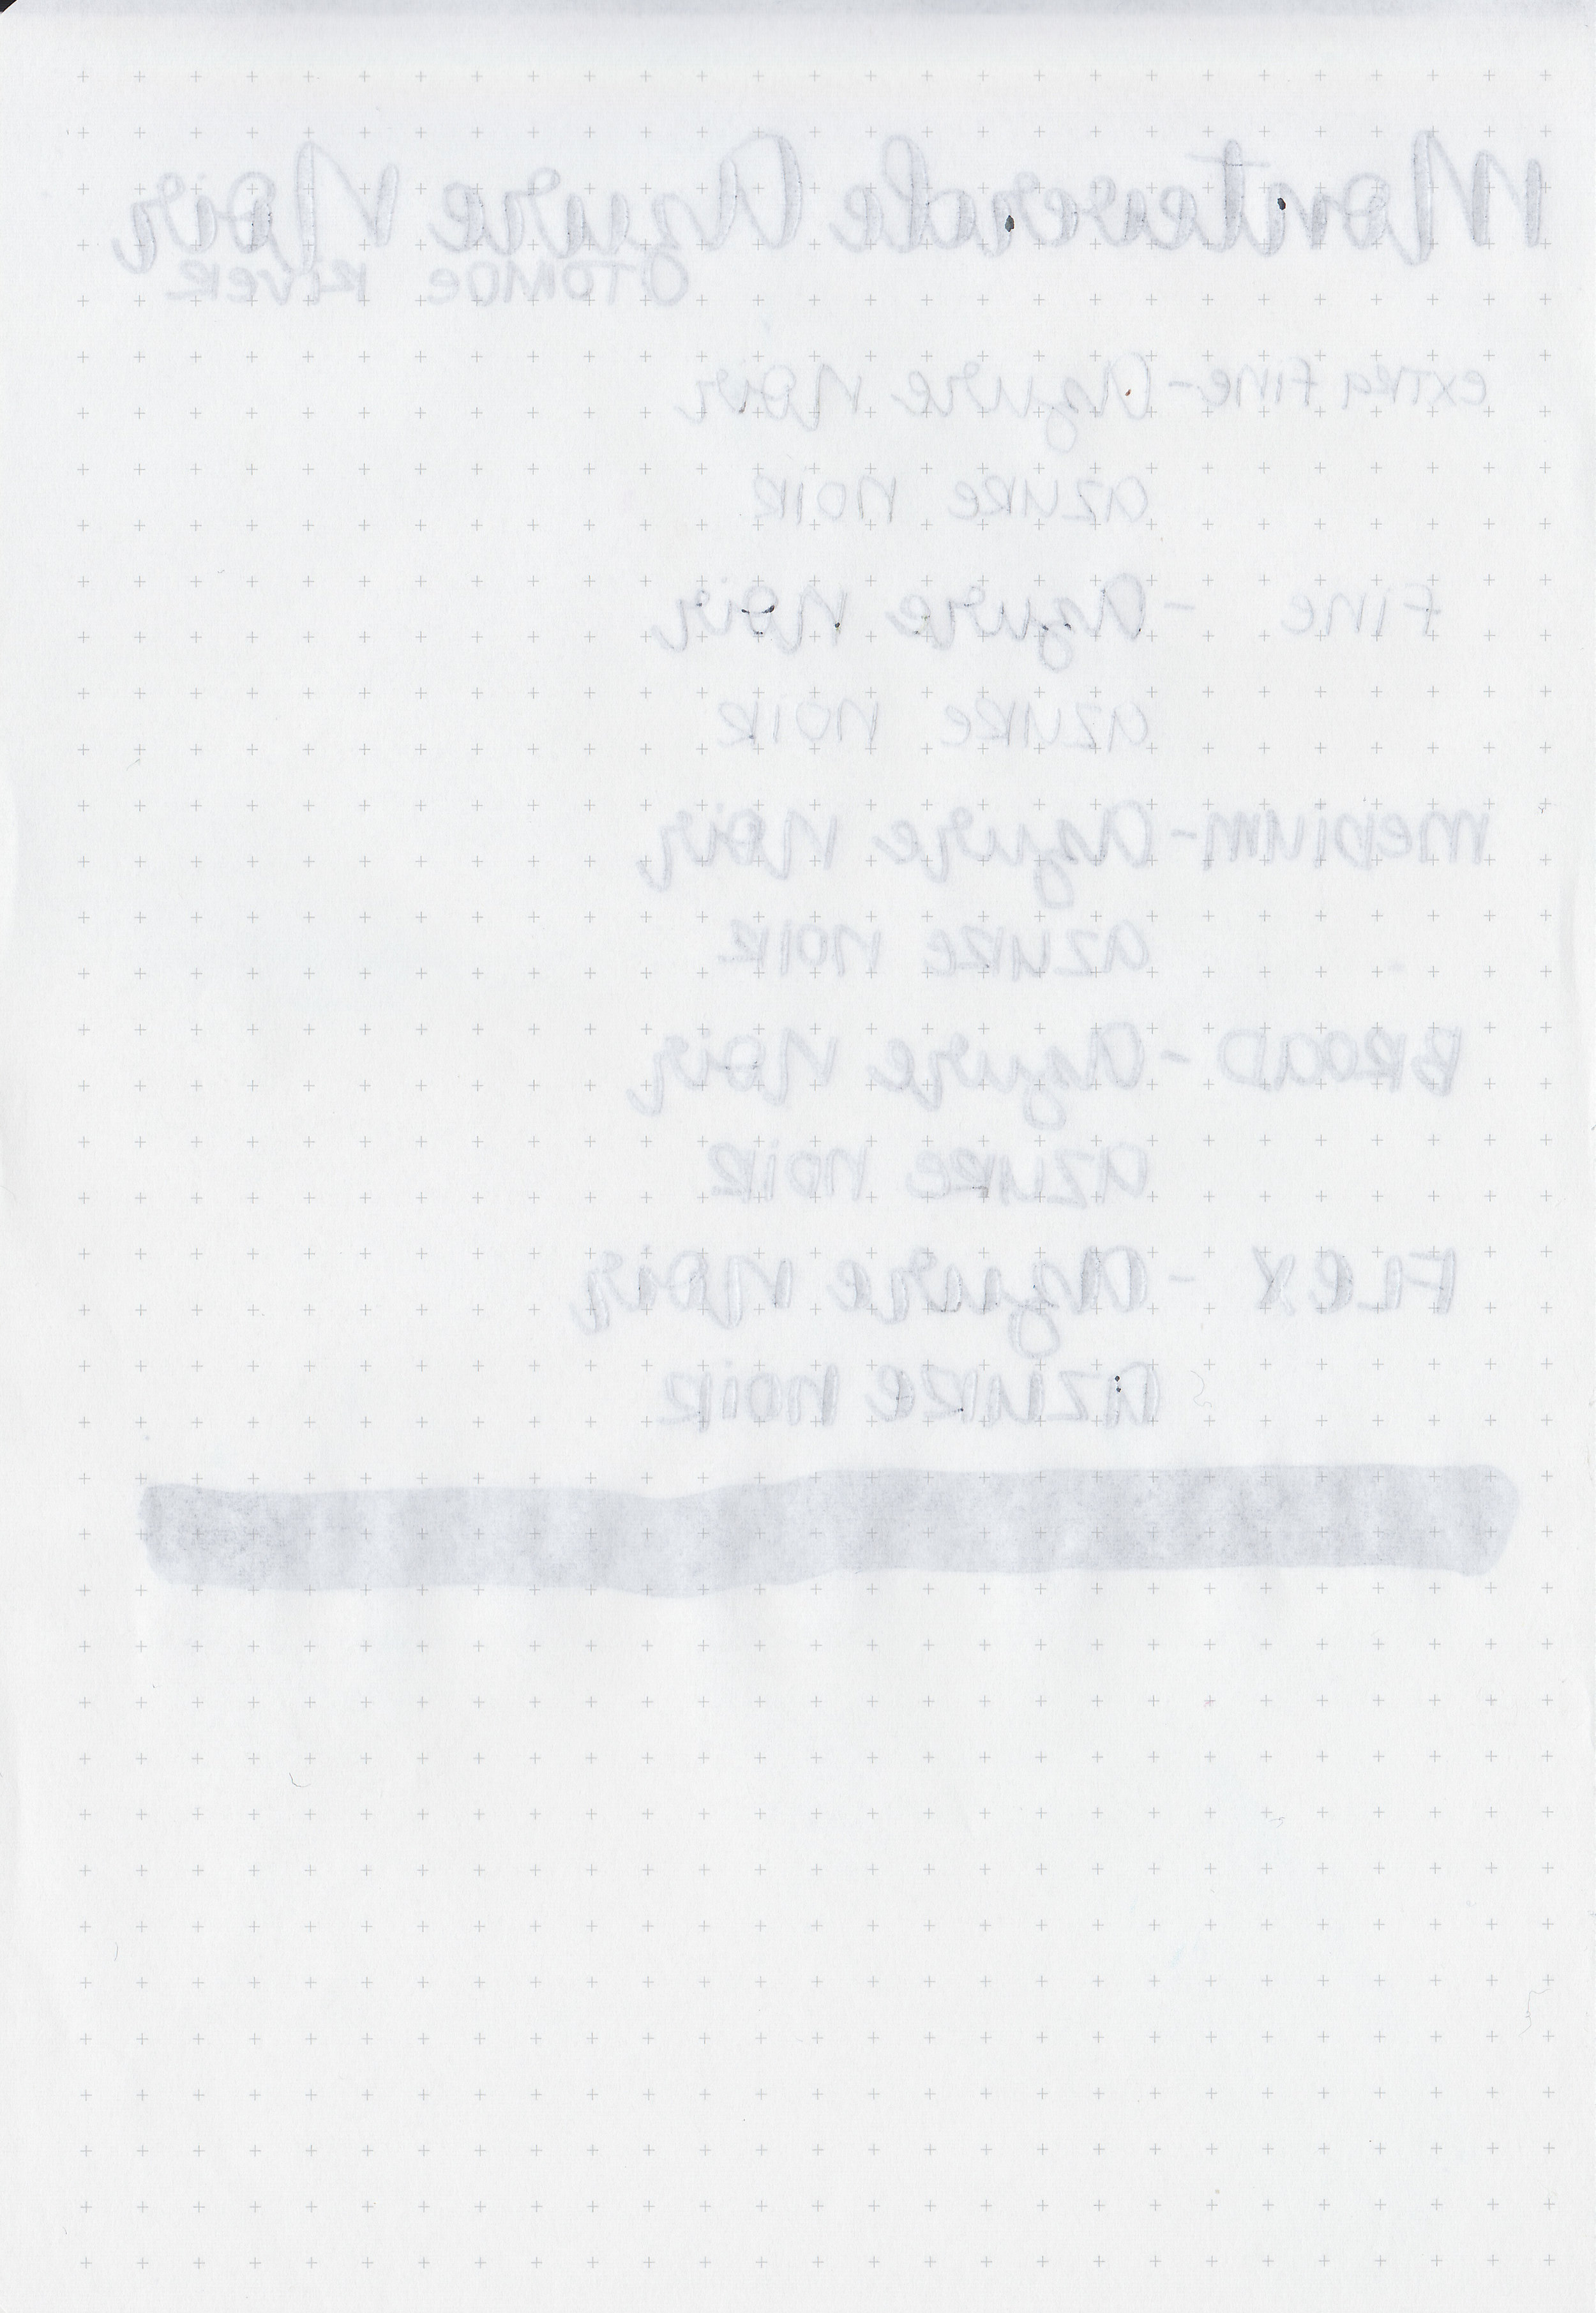 Monteverde Azure Noir
TOMOE RIVER
EXTRA FINE - Azure Noir
AZURE NOIR
FINE - Azure Noir
AZURE NOIR
MEDIUM - Azure Noir
AZURE NOIR
BROAD - Azure Noir
AZURE NOIR
FLEX - Azure Noir
AZURE NOIR